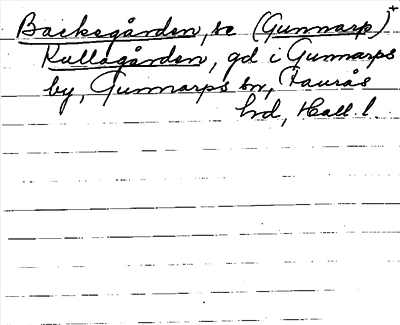 Backagården, se (Gunnarp) +
Kullagården, gd i Gunnarps
by, Gunnarps sn, Faurås
hd, Hall. l.